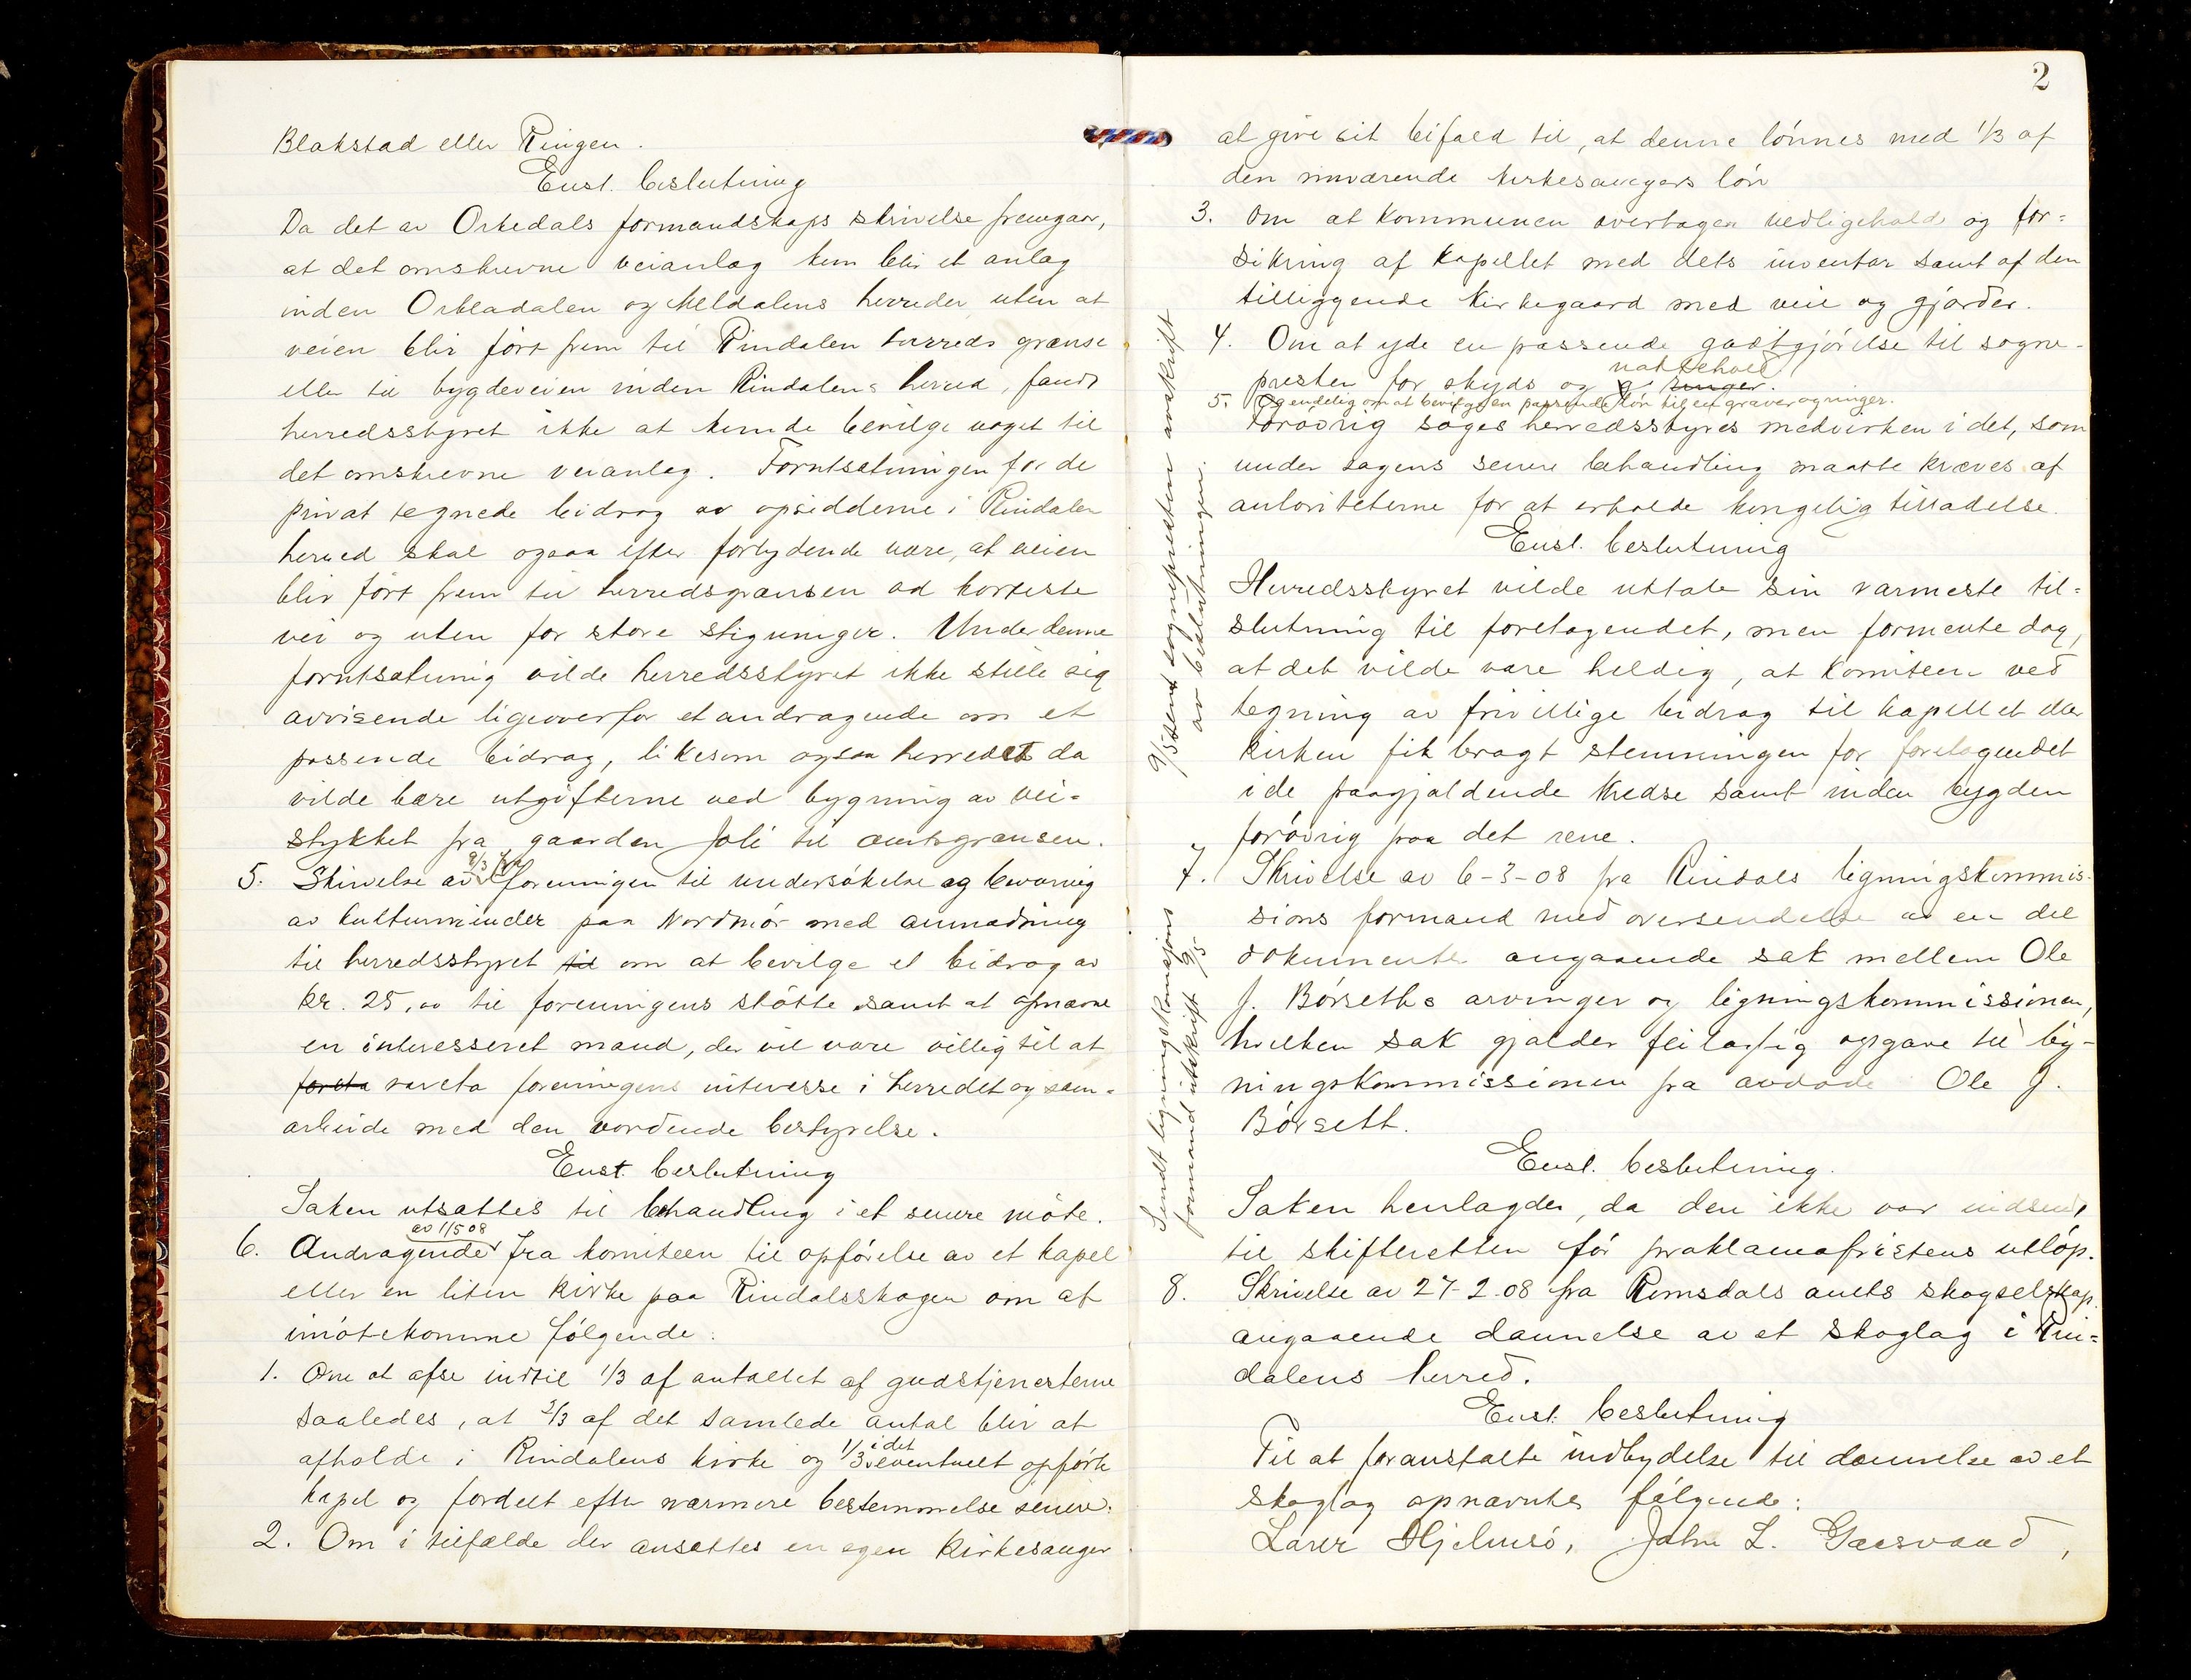 Blakstad eller Ringen.
Enst. beslutning
Da det av Orkedals formandskaps skrivelse fremgaar,
at det omskrevne veianlæg kun blir et anlæg
inden Orkladalen og Meldalens herreder uten at
veien blir ført frem til Rindalen herreds grænse
eller til bygdeveien inden Rindalens herred, fandt
herredsstyret ikke at kunde bevilge noget til
det omskrevne veianlæg. Forutsætningen for de
privat tegnede bidrag av opsidderne i Rindalen
herred skal ogsaa efter forlydende være, at veien
blir ført frem til herredsgrænsen ad korteste
vei og uten for store stigninger. Under denne
forutsætning vilde herredsstyret ikke stille sig
avvisende ligeoverfor et andragende om et
passende bidrag, likesom ogsaa herredet da
vilde bære utgifterne ved bygning av vei-
stykket fra gaarden Joli til amtsgrænsen.
5. Skrivelse av 9/3 fra foreningen til undersøkelse og bevaring
av kulturminder paa Nordmør med anmodning
til herredsstyret til om at bevilge et bidrag av
kr. 25,00 til foreningens støtte samt at opnævne
en interesseret mand, der vil være villig til at
foreta vareta foreningens interesse i herredet og sam-
arbeide med den vordende bestyrelse.
Enst. beslutning
Saken utsættes til behandling i et senere møte.
6. Andragende av 1/5 08 fra komiteen til opførelse av et kapel
eller en liten kirke paa Rindalsskogen om at
imøtekomme følgende:
1. Om at afse indtil 1/3 af antallet af gudstjenesterne
saaledes, at 2/3 af det samlede antal blir at
afholde i Rindalens kirke og 1/3 i det eventuelt opførte
kapel og fordelt efter nærmere bestemmelse senere.
2. Om i tilfælde der ansættes en egen kirkesanger
2
at give sit bifald til, at denne lønnes med 1/3 af
den nuværende kirkesangers løn
3. Om at kommunen overtager vedligehold og for-
sikring af kapellet med dets inventar samt af den
tilliggende kirkegaard med veie og gjærder.
4. Om at yde en passende godtgjørelse til sogne-
presten for skyds og nattehold
5. Og endelig om at bevilge en passende løn til en graver og ringer.
Forøvrig søges herredsstyres medvirken i det, som
under sagens senere behandling maatte kræves af
autoriteterne for at erholde kongelig tilladelse.
Enst. beslutning
Herredsstyret vilde uttale sin varmeste til-
slutning til foretagendet, men formente dog,
at det vilde være heldig, at komiteen ved
tegning av frivillige bidrag til kapellet eller
kirken fik bragt stemningen for foretagendet
i de paagjældende kredse samt inden bygden
forøvrig paa det rene.
7. Skrivelse av 6-3-08 fra Rindals ligningskommis-
sions formand med oversendelse av en del
dokumenter angaaende sak mellem Ole
J. Børseths arvinger og ligningskommissionen,
hvilken sak gjælder feilagtig opgave til lig-
ningskommissionen fra avdøde Ole J.
Børsett.
Enst. beslutning.
Saken henlagdes, da den ikke var indsendt
til skifteretten før proklamafristens utløp.
8. Skrivelse av 27-2-08 fra Romsdals amts skogselskap
angaaende dannelse av et skoglag i Rin-
dalens herred.
Enst. beslutning
Til at foranstalte indbydelse til dannelse av et
skoglag opnævntes følgende:
Lærer Hjelmsø, John L. Gaasvand,
9/5 sendt sognepresten avskrift
av beslutningen.
Sendt ligningskomisjons
formand utskrift 9/5